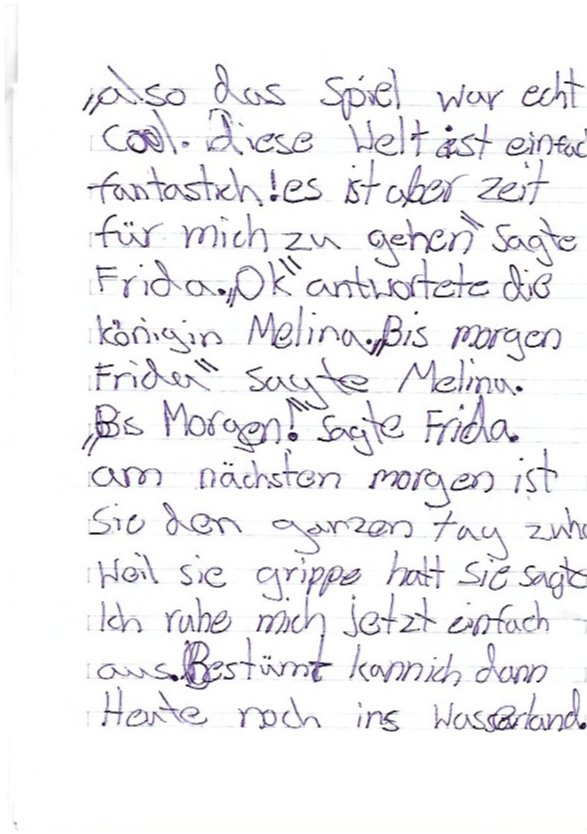 „also das Spiel war echt
Cool. Diese Welt ist einfac
fantastich! es ist aber zeit
für mich zu gehen" sagte
Frida. „Ok" antwortete die
königin Melina. „Bis morgen
Frida" sagte Melina.
„Bis Morgen!" sagte Frida.
am nächsten morgen ist
Sie den ganzen tag zuha
Weil sie grippe hatt Sie sagte
Ich ruhe mich jetzt einfach
aus. Bestümt kannich dann
Heute noch ins Wasserland.